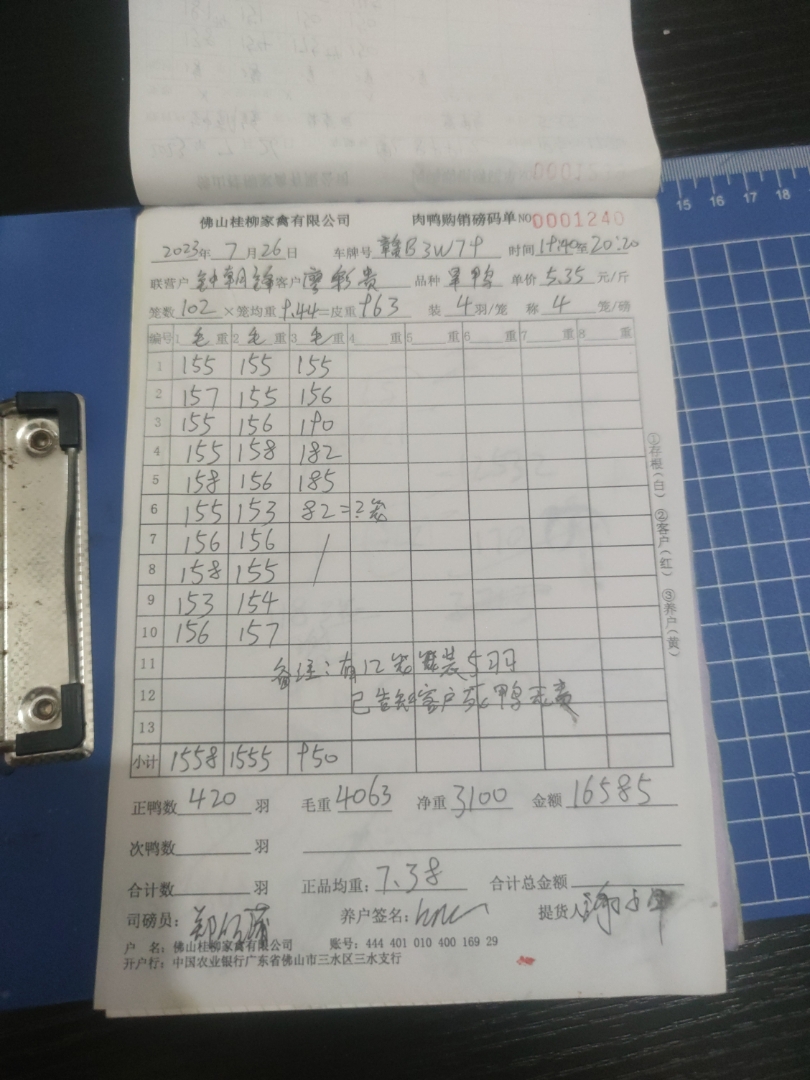 佛山桂柳家禽有限公司 肉鸭购销磅码单 NO 0001240
2023年 7 月 26 日 车牌号 赣B3W79 时间 19:40至20:20
联营户 钟朝锋 客户 廖彩贵 品种 旱鸭 单价 5.35 元/斤
笼数 102 ×笼均重 9.44 =皮重 963 装 4 羽/笼 称 4 笼/磅
编号 1 毛 重 2 毛 重 3 毛 重 4 重 5 重 6 重 7 重 8 重
1 155 155 155
2 157 155 156
3 155 156 190
4 155 158 182
5 158 156 185
6 155 153 82=2笼
7 156 156 /
8 158 155
9 153 154
10 156 157
11 备注:有12笼装5羽
12 已告知客户死鸭无责
13
小计 1558 1555 950
正鸭数 420 羽 毛重 4063 净重 3100 金额 16585
次鸭数 羽
合计数 羽 正品均重: 7.38 合计总金额
司磅员: 养户签名: 提货人
户 名: 佛山桂柳家禽有限公司 账号: 444 401 010 400 169 29
开户行: 中国农业银行广东省佛山市三水区三水支行
①存根(白) ②客户(红) ③养户(黄)
15 16 17 18